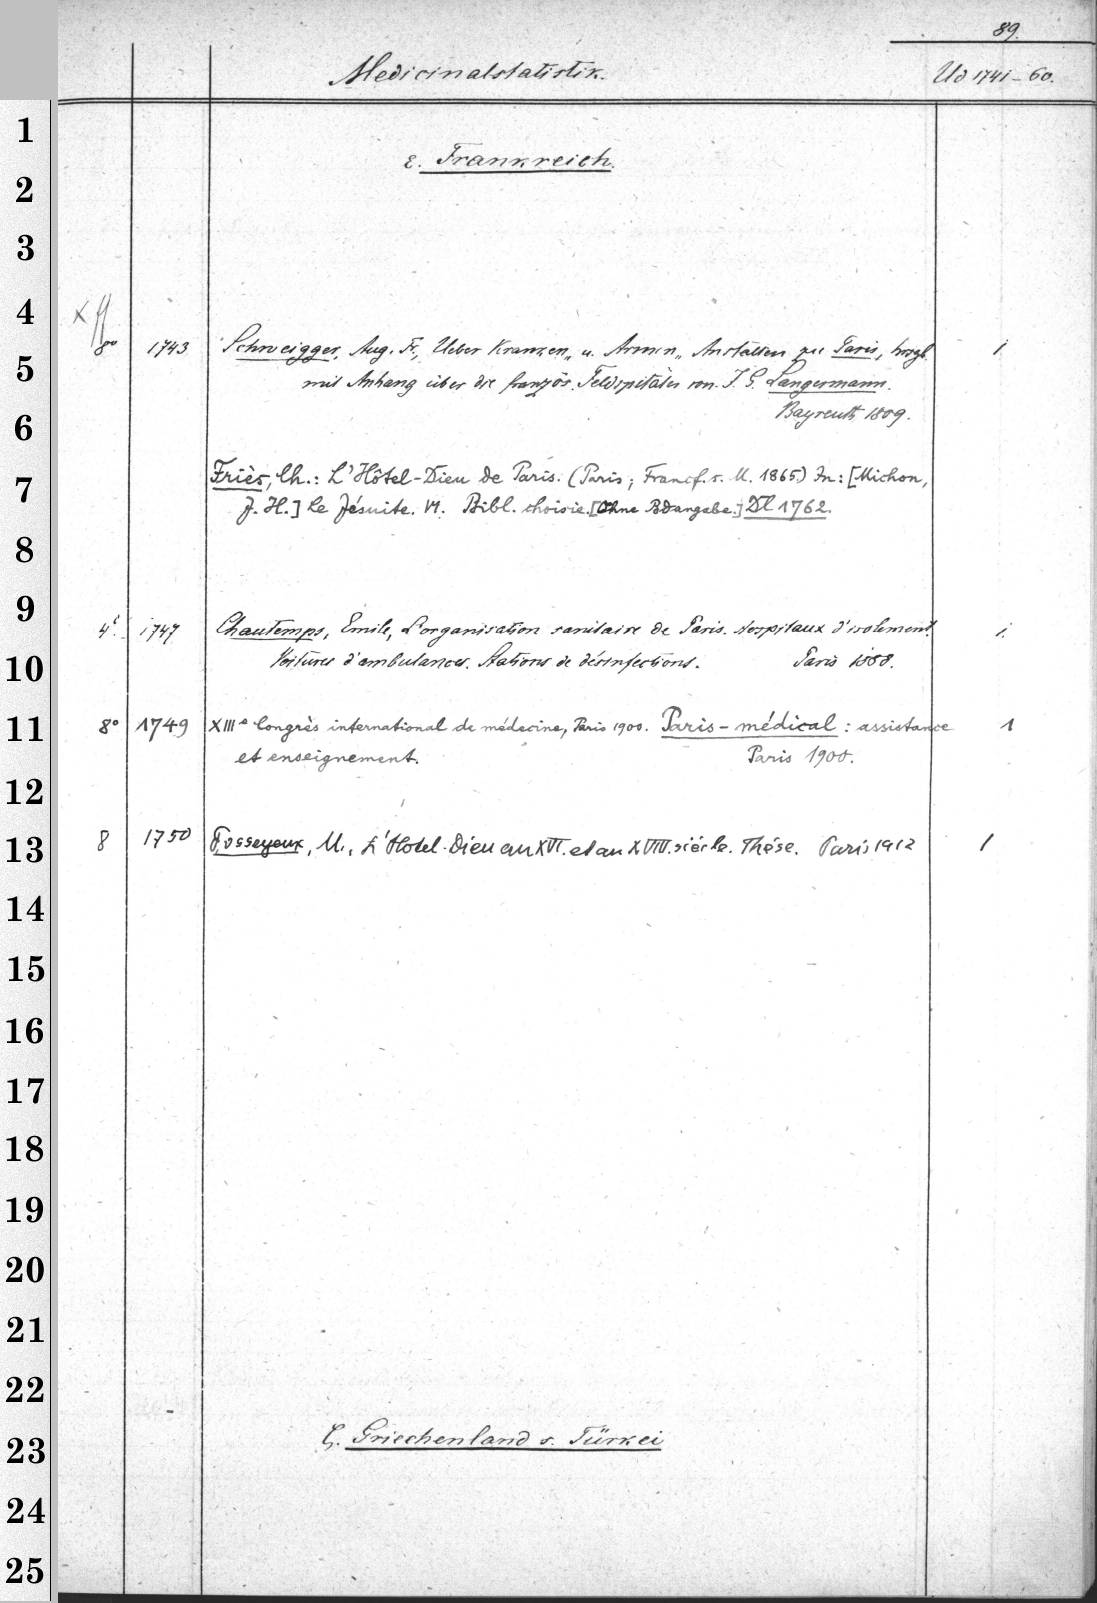 89.
Medicinalstatistik. Ud 1741-60.
1
ε. Frankreich.
2
3
4
8° 1743 Schweigger, Aug. Fr., Ueber Kranken- u. Armen-Anstalten zu Paris, hrsgb. 1
5
mit Anhang über die französ. Feldspitäler von J. G. Langermann.
6
Bayreuth 1809.
7
Friès, Ch.: L'Hôtel-Dieu de Paris. (Paris; Francf. s. M. 1865) In: [Michon,
J. H.] Le Jésuite. VI. Bibl. choisie. [Ohne Bdangabe.] Dl 1762.
8
9
4° 1747 Chautemps, Emile, L'organisation sanitaire de Paris. Hospitaux d'isolement. 1.
10
Voitures d'ambulances. Stations de désinfections. Paris 1888.
11
8° 1749 XIIIe Congrès international de médecine, Paris 1900. Paris-médical: assistance 1
et enseignement. Paris 1900.
12
13
8 1750 Fosseyeux, M., L'Hotel-Dieu au XVII. et au XVIII. siècle. Thèse. Paris 1912 1
14
15
16
17
18
19
20
21
22
23
ζ. Griechenland s. Türkei
24
25